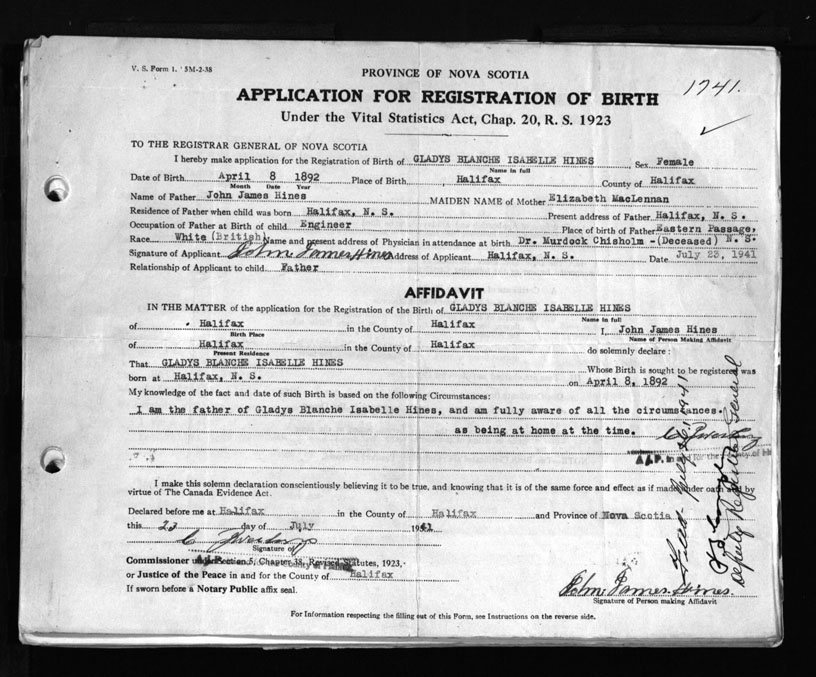 V. S. Form 1. 5M-2-38
PROVINCE OF NOVA SCOTIA
1741.
APPLICATION FOR REGISTRATION OF BIRTH
Under the Vital Statistics Act, Chap. 20, R. S. 1923
TO THE REGISTRAR GENERAL OF NOVA SCOTIA
I hereby make application for the Registration of Birth of GLADYS BLANCHE ISABELLE HINES, Sex Female
Name in full
Date of Birth April 8 1892 Place of Birth Halifax County of Halifax
Month Date Year
Name of Father John James Hines MAIDEN NAME of Mother Elizabeth MacLennan
Residence of Father when child was born Halifax, N. S. Present address of Father Halifax, N. S.
Occupation of Father at Birth of child Engineer Place of birth of Father Eastern Passage,
Race White (British) Name and present address of Physician in attendance at birth Dr. Murdock Chisholm -(Deceased) N. S.
Signature of Applicant John James Hines Address of Applicant Halifax, N. S. Date July 23, 1941
Relationship of Applicant to child Father
AFFIDAVIT
IN THE MATTER of the application for the Registration of the Birth of GLADYS BLANCHE ISABELLE HINES
Name in full
of Halifax in the County of Halifax I, John James Hines
Birth Place Name of Person Making Affidavit
of Halifax in the County of Halifax do solemnly declare:
Present Residence
That GLADYS BLANCHE ISABELLE HINES Whose Birth is sought to be registered was
born at Halifax, N. S. on April 8, 1892
My knowledge of the fact and date of such Birth is based on the following Circumstances:
I am the father of Gladys Blanche Isabelle Hines, and am fully aware of all the circumstances.
as being at home at the time.
A J.P. in and for the County of
I make this solemn declaration conscientiously believing it to be true, and knowing that it is of the same force and effect as if made under oath and by
virtue of The Canada Evidence Act.
Declared before me at Halifax in the County of Halifax and Province of Nova Scotia
this 23 day of July 1941
Signature of
Commissioner under Section 5, Chapter 38, Revised Statutes, 1923,
or Justice of the Peace in and for the County of Halifax
If sworn before a Notary Public affix seal.
John James Hines
Signature of Person making Affidavit
For Information respecting the filling out of this Form, see Instructions on the reverse side.
Deputy Registrar General